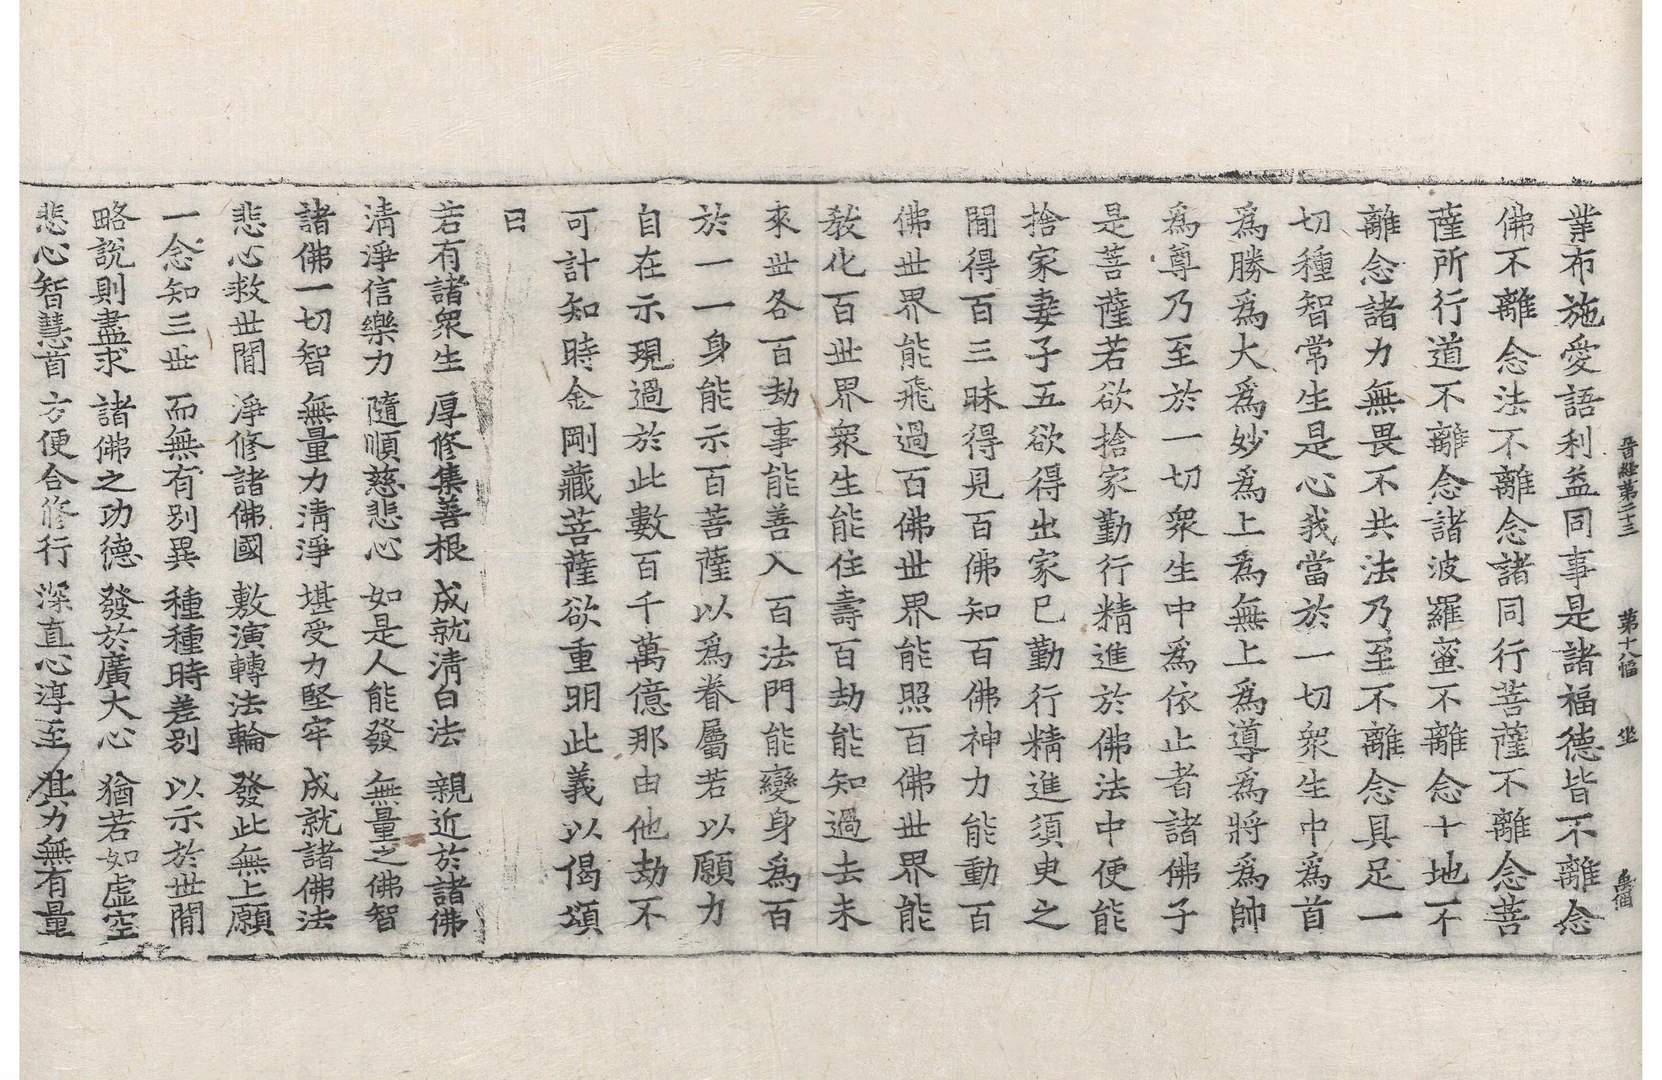 晉經第二十三 第十八幅 坐
業布施愛語利益同事是諸福德皆不離念
佛不離念法不離念諸同行菩薩不離念菩
薩所行道不離念諸波羅蜜不離念十地不
離念諸力無畏不共法乃至不離念具足一
切種智常生是心我當於一切衆生中爲首
爲勝爲大爲妙爲上爲無上爲導爲將爲帥
爲尊乃至於一切衆生中爲依止者諸佛子
是菩薩若欲捨家勤行精進於佛法中便能
捨家妻子五欲得出家已勤行精進須臾之
閒得百三昧得見百佛知百佛神力能動百
佛世界能飛過百佛世界能照百佛世界能
教化百世界衆生能住壽百劫能知過去未
來世各百劫事能善入百法門能變身爲百
於一一身能示百菩薩以爲眷屬若以願力
自在示現過於此數百千萬億那由他劫不
可計知時金剛藏菩薩欲重明此義以偈頌
曰
若有諸衆生 厚修集善根 成就淸白法 親近於諸佛
淸淨信樂力 隨順慈悲心 如是人能發 無量之佛智
諸佛一切智 無量力淸淨 堪受力堅牢 成就諸佛法
悲心救世閒 淨修諸佛國 敷演轉法輪 發此無上願
一念知三世 而無有別異 種種時差別 以示於世閒
略說則盡求 諸佛之功德 發於廣大心 猶若如虛空
悲心智慧首 方便合修行 深直心淳至 其力無有量